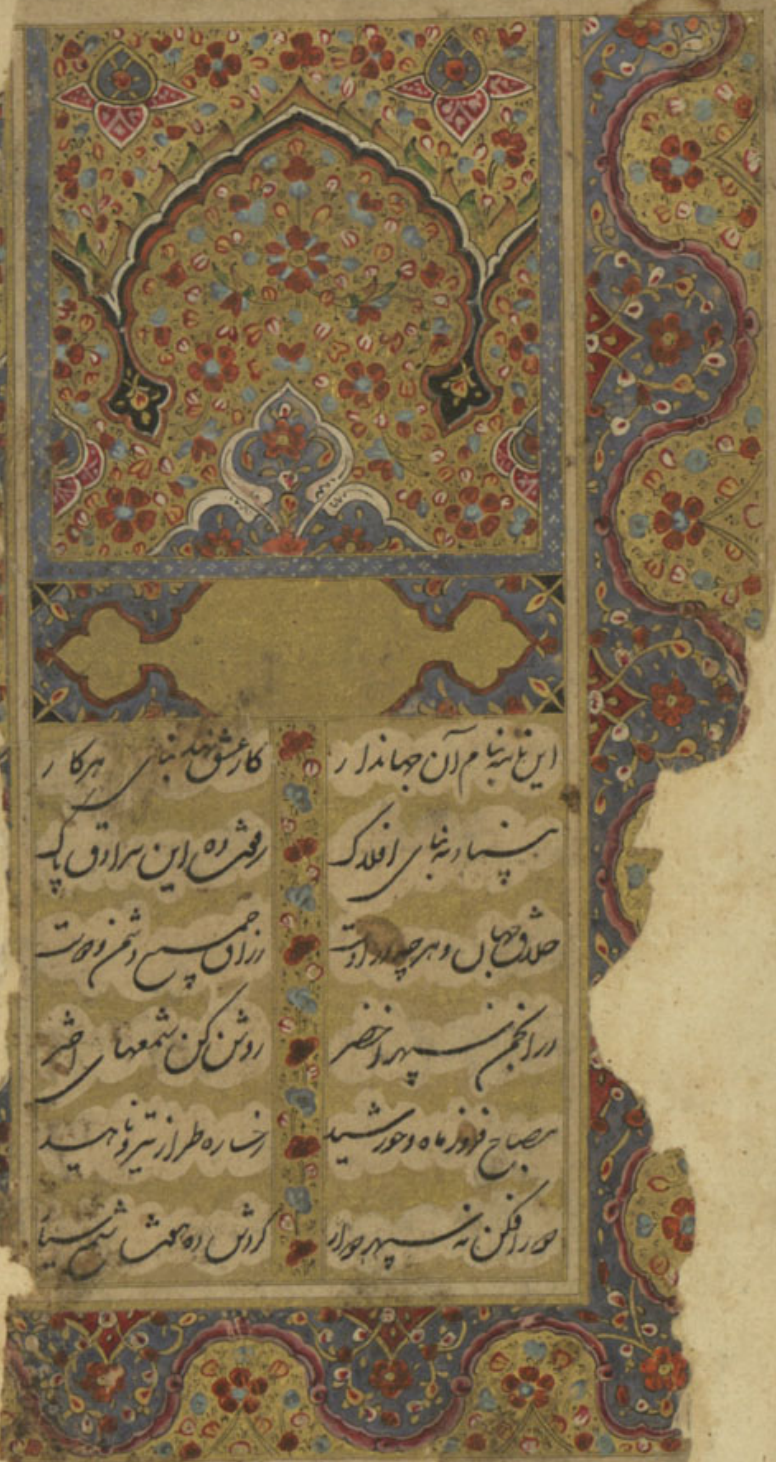 این نامه بنام آن جهاندار کار عشق نهد بنای هر کار
بنای افلاک رفعت ده این سرادق پاک
خلاق جهان و هر چه در اوست رزاق جمیع دشمن و دوست
در انجمن سپهر اخضر روشن کن شمعهای اختر
مصباح فروز ماه و خورشید رخساره طراز تیر و ناهید
نه سپهر گردش ده هفت شمع